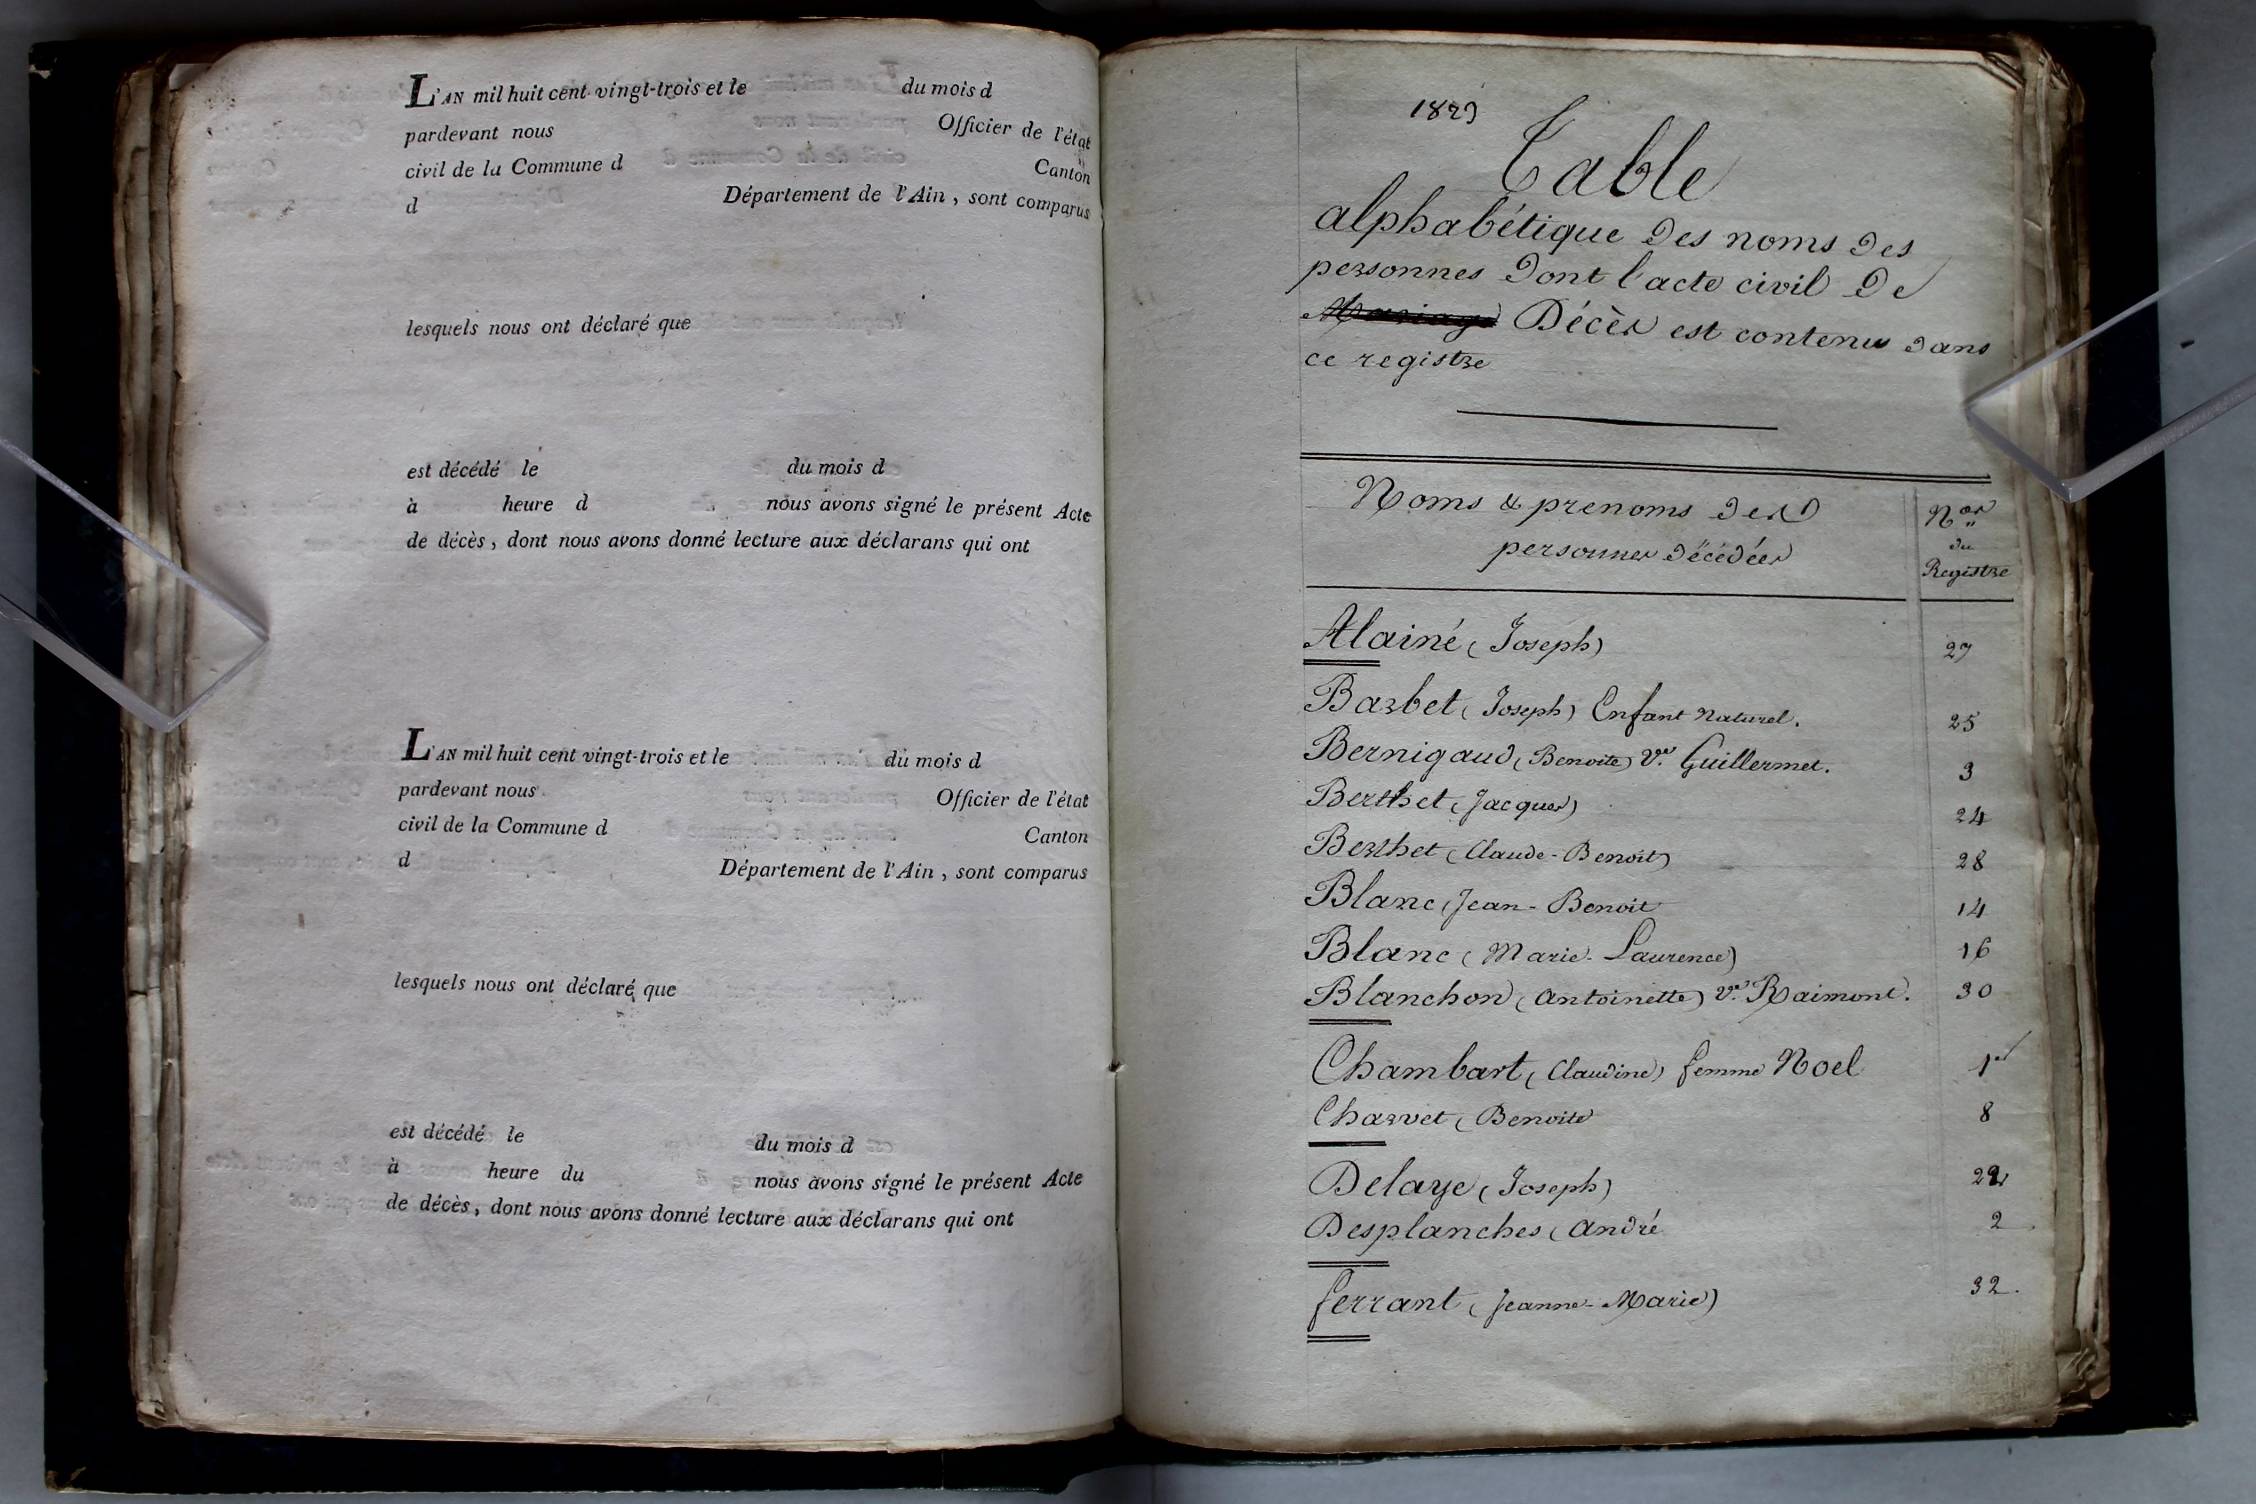 L'AN mil huit cent vingt-trois et le du mois d
pardevant nous Officier de l'état
civil de la Commune d Canton
d Département de l'Ain, sont comparus
lesquels nous ont déclaré que
est décédé le du mois d
à heure d nous avons signé le présent Acte
de décès, dont nous avons donné lecture aux déclarans qui ont
L'AN mil huit cent vingt-trois et le du mois d
pardevant nous Officier de l'état
civil de la Commune d Canton
d Département de l'Ain, sont comparus
lesquels nous ont déclaré que
est décédé le du mois d
à heure du nous avons signé le présent Acte
de décès, dont nous avons donné lecture aux déclarans qui ont
1823
Table
alphabétique des noms des
personnes dont l'acte civil de
Mariage Décès est contenu dans
ce registre
Noms & prenoms des
personnes décédées
Nos
du
Registre
Alainé (Joseph) 27
Barbet (Joseph) Enfant Naturel. 25
Bernigaud (Benoite) Ve. Guillermet. 3
Berthet (Jacques) 24
Berthet (Claude-Benoit) 28
Blanc (Jean-Benoit 14
Blanc (Marie-Laurence) 16
Blanchon (Antoinette) Ve. Raimont. 30
Chambart (Claudine) femme Noel 1er
Charvet (Benoite 8
Delaye (Joseph) 22
Desplanches (André 2
ferrant (Jeanne-Marie) 32.